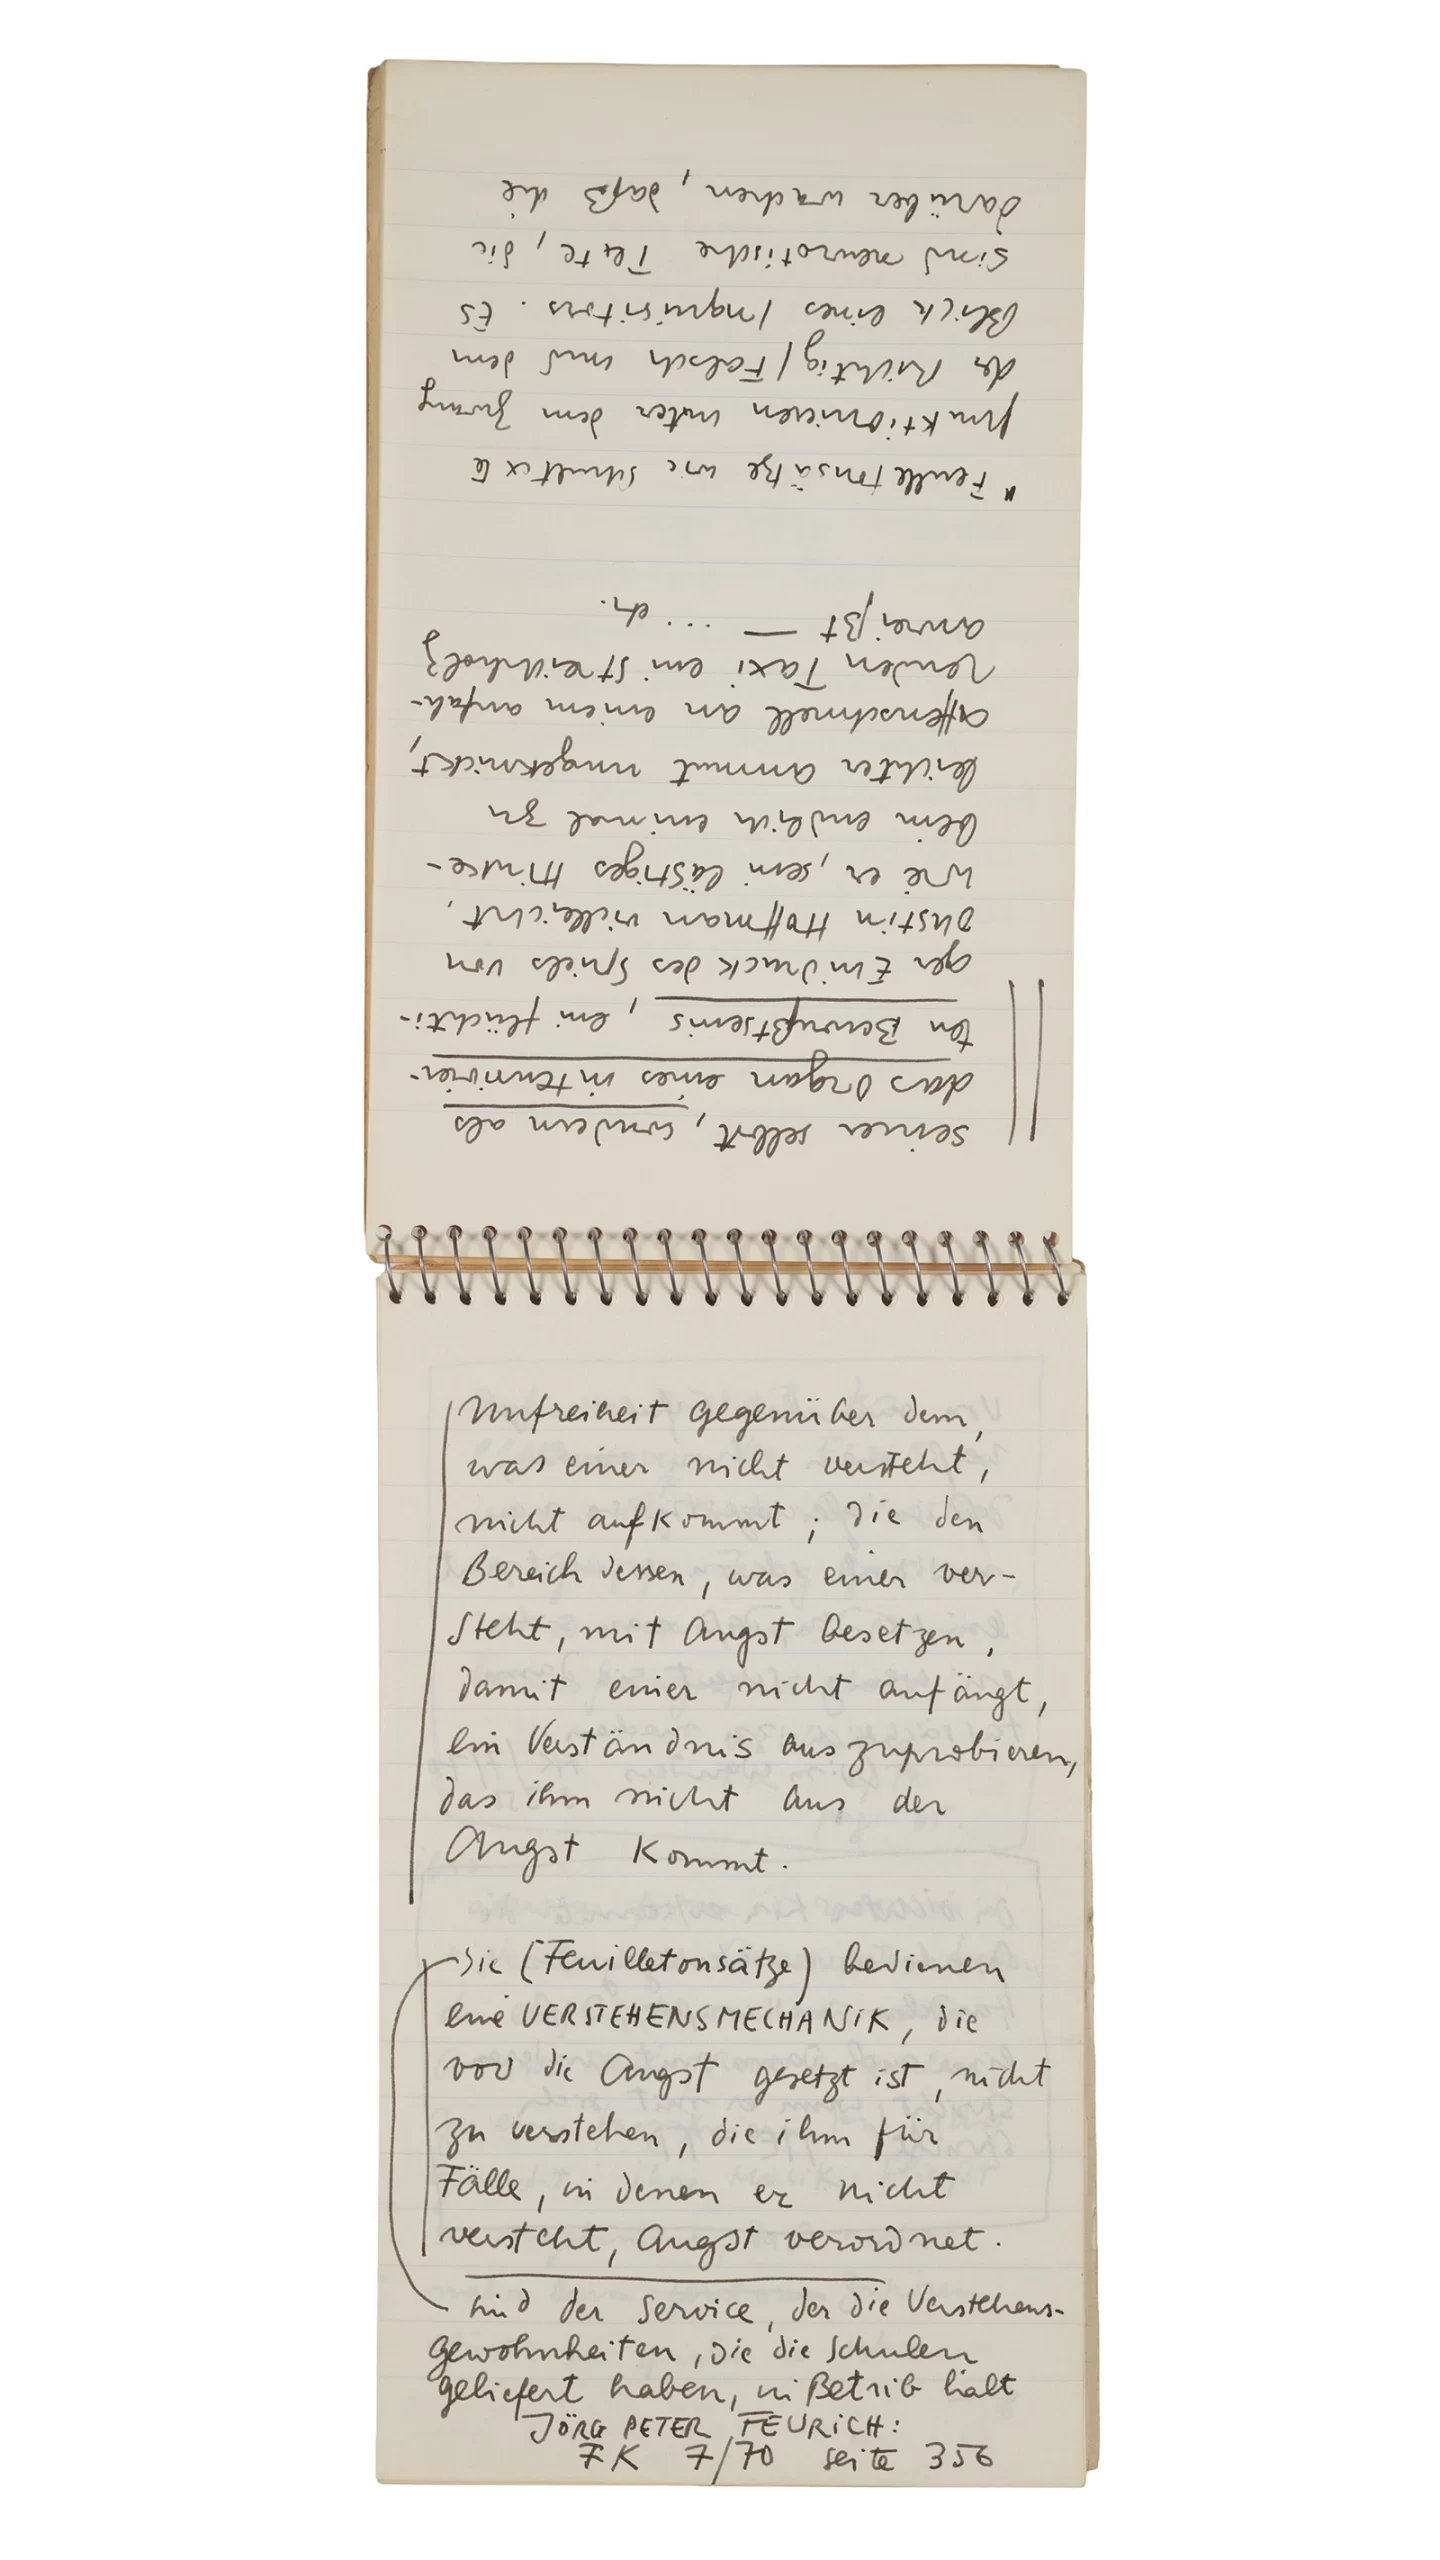 seiner selbst, sondern als
das Organ eines intensivier-
ten Bewußtseins, ein flüchti-
ger Eindruck des Spiels von
Dustin Hoffman vielleicht,
wie er, sein lästiges Hinke-
bein endlich einmal zu
leichter Anmut umgeknickt,
affenschnell an einem anfah-
renden Taxi ein Streichholz
anreißt — ... ch.
"Feuilletonsätze wie Schultexte
funktionieren unter dem Zwang
der Richtig/Falsch und dem
Blick eines Inquisitors. Es
sind neurotische Texte, die
darüber wachen, daß die
Unfreiheit gegenüber dem,
was einer nicht versteht,
nicht aufkommt; die den
Bereich dessen, was einer ver-
steht, mit Angst besetzen,
damit einer nicht anfängt,
ein Verständnis auszuprobieren,
das ihm nicht aus der
Angst kommt.
die (Feuilletonsätze) bedienen
eine VERSTEHENSMECHANIK, die
vor die Angst gesetzt ist, nicht
zu verstehen, die ihm für
Fälle, in denen er nicht
versteht, Angst verordnet.
sind der Service, der die Verstehens-
gewohnheiten, die die Schulen
geliefert haben, in Betrieb hält
JÖRG PETER FEURICH:
FK 7/70 Seite 356